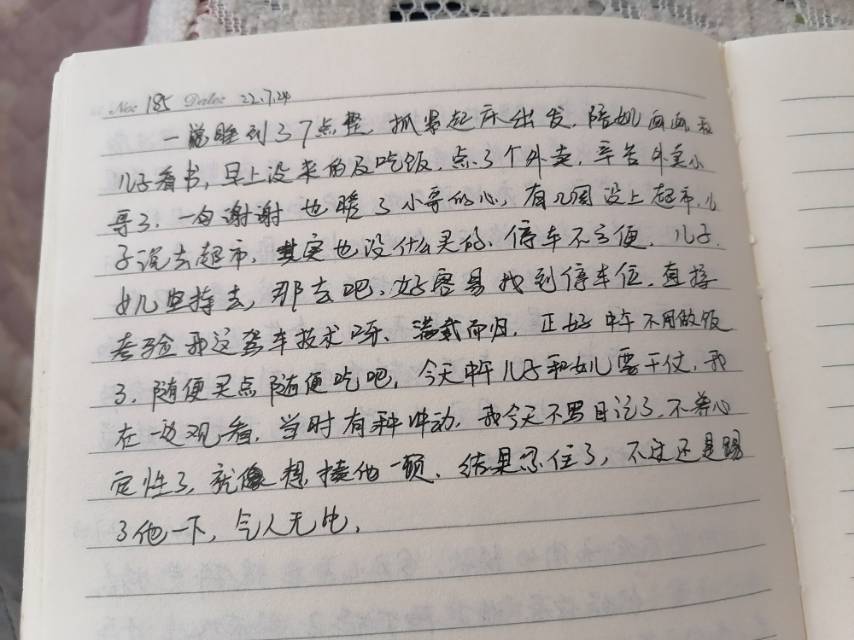 No: 185 Date: 22.7.24
一觉睡到了7点整,抓紧起床出发,陪她画画和
儿子看书,早上没来的及吃饭,点了个外卖,辛苦外卖小
哥了,一句谢谢也暖了小哥的心,有几周没上超市,儿
子说去超市,其实也没什么买的,停车不方便,儿子.
女儿坚持去,那去吧,好容易找到停车位,直接
考验我这驾车技术呀、满载而归,正好中午不用做饭
了,随便买点随便吃吧,今天中午儿子和女儿要干仗,我
在一边观看,当时有种冲动,我今天不写日记了,不养心
定性了,就像想揍他一顿,结果忍住了,不过还是踢
了他一下,气人无比,